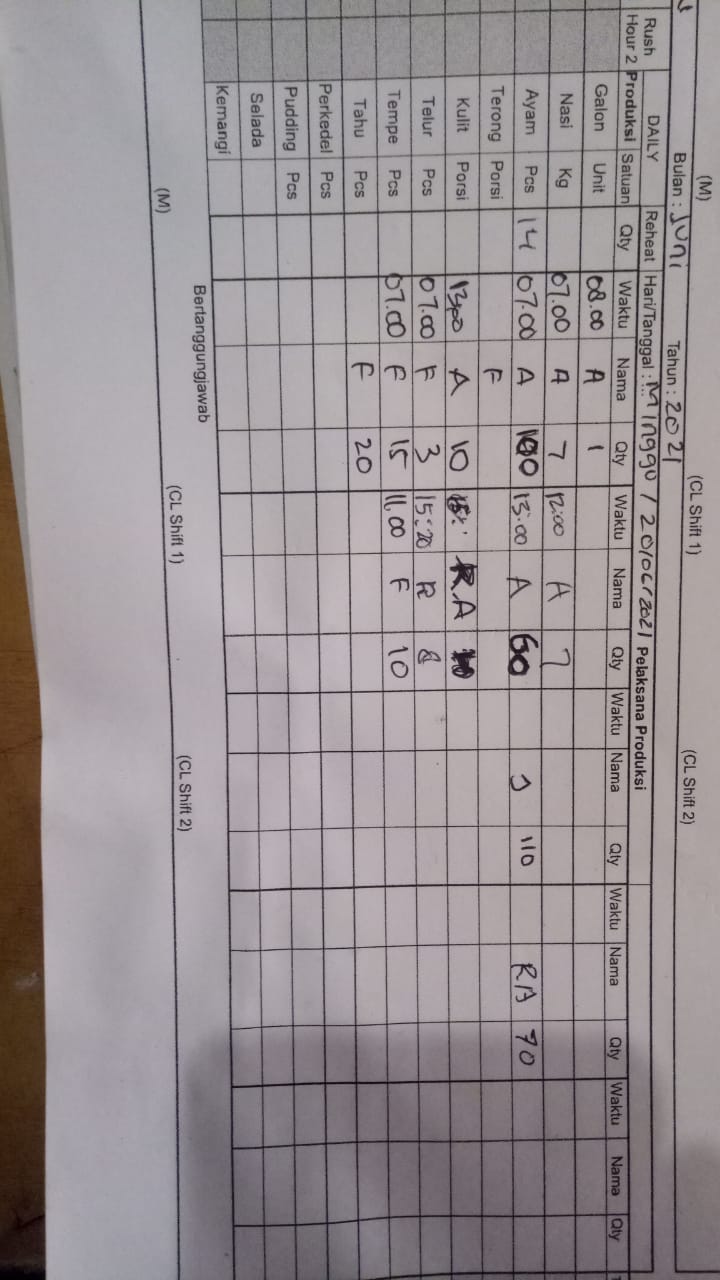 (M) (CL Shift 1) (CL Shift 2)
Bulan : Juni Tahun : 2021
Rush DAILY Reheat Hari/Tanggal : Minggu / 20/06/2021 Pelaksana Produksi
Hour 2 Produksi Satuan Qty Waktu Nama Qty Waktu Nama Qty Waktu Nama Qty Waktu Nama Qty Waktu Nama Qty
Galon Unit 08.00 A 1
Nasi Kg 07.00 A 7 12:00 A 7
Ayam Pcs 14 07.00 A 100 13:00 A 60 J 110 RA 70
Terong Porsi F
Kulit Porsi A 10 A
Telur Pcs 07.00 F 3 15:20 R 8
Tempe Pcs 07.00 F 15 11.00 F 10
Tahu Pcs F 20
Perkedel Pcs
Pudding Pcs
Selada
Kemangi
Bertanggungjawab
(M) (CL Shift 1) (CL Shift 2)